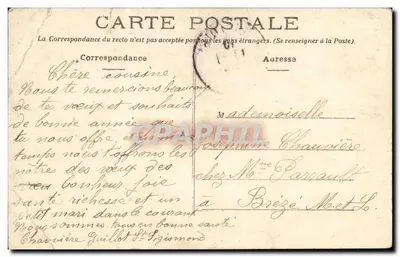 CARTE POSTALE
La Correspondance du recto n'est pas acceptée par tous les pays étrangers. (Se renseigner à la Poste).
Correspondance
Adresse
Chère cousine
Nous te remercions beaucoup
de te vœux et souhaits
de bonne année que
tu nous offre, en même
temps nous t'offrons les
nôtre des vœux de
bonheur joie
santé richesse et un
petit mari dans le courant
Nous sommes tous en bonne santé
Chauvière Guillot St Sigismond
Mademoiselle
Joséphine Chauvière
chez Mme Parrault
à Brézé M.et L.